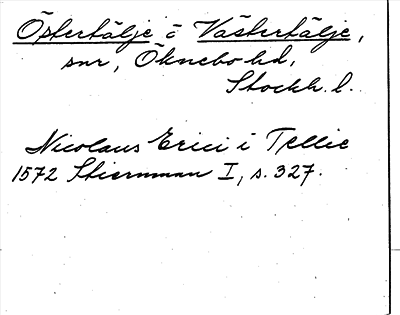 Östertälje o Västertälje,
snr, Öknebo hd,
Stockh. l.
Nicolaus Erici i Tellie
1572 Stiernman I, s. 327.